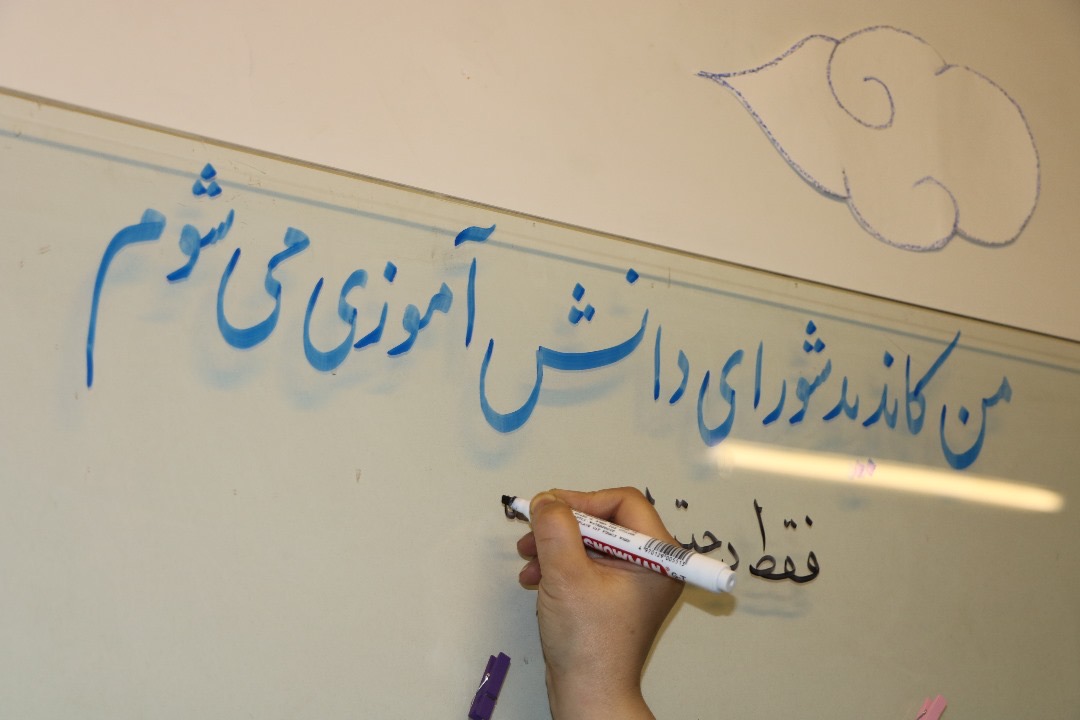 من کاندید شورای دانش آموزی می شوم
فقط
SNOWMAN